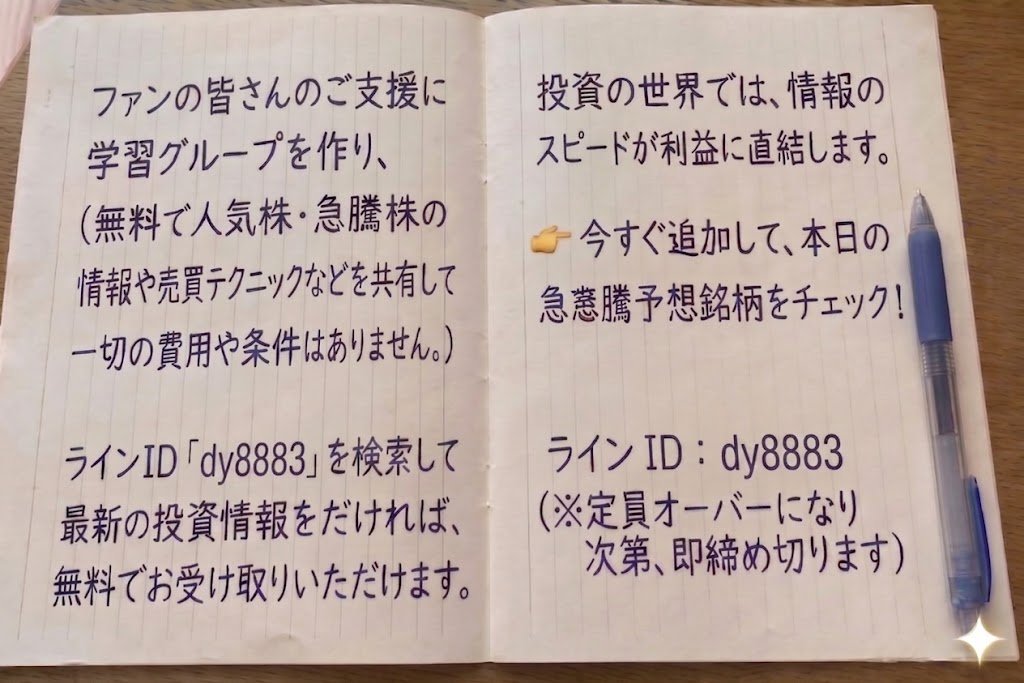 ファンの皆さんのご支援に
学習グループを作り、
(無料で人気株・急騰株の
情報や売買テクニックなどを共有して
一切の費用や条件はありません。)
ラインID「dy8883」を検索して
最新の投資情報をだければ、
無料でお受け取りいただけます。
投資の世界では、情報の
スピードが利益に直結します。
👉 今すぐ追加して、本日の
騰予想銘柄をチェック!
ライン ID : dy8883
(※定員オーバーになり
次第、即締め切ります)